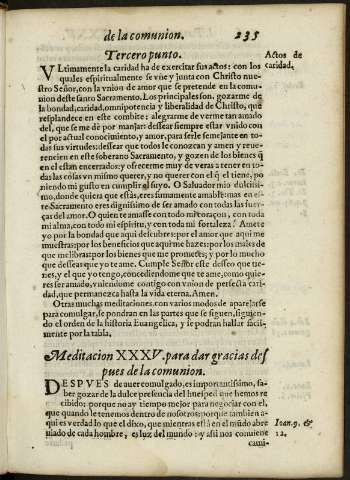 de la comunion. 235
Tercero punto.
Actos de
caridad.
VLtimamente la caridad ha de exercitar sus actos: con los
quales espiritualmente se vne y junta con Christo nue-
stro Señor, con la vnion de amor que se pretende en la comu-
nion deste santo Sacramento. Los principales son, gozarme de
la bondad, caridad, omnipotencia y liberalidad de Christo, que
resplandece en este combite: alegrarme de verme tan amado
del, que se me dè por manjar: dessear siempre estar vnido con
el por actual conocimiento, y amor, para serle semejante en to-
das sus virtudes: dessear que todos le conozcan y amen y reue-
rencien en este soberano Sacramento, y gozen de los bienes q̃
en el estan encerrados: y ofrecerme muy de veras a tener en to-
das las cosas vn mismo querer, y no querer con el q̃ el tiene, po
niendo mi gusto en cumplir el suyo. O Saluador mio dulcissi-
mo, donde quiera que estàs, eres sumamente amable: mas en es-
te Sacramento eres dignissimo de ser amado con todas las fuer-
ças del amor. O quien te amasse con todo mi coraçon, con toda
mi alma, con todo mi espiritu, y con toda mi fortaleza! Amete
yo por la bondad que aqui descubres: por el amor que aqui me
muestras: por los beneficios que aqui me hazes: por los males de
que me libras: por los bienes que me prometes; y por lo mucho
que desseas que yo te ame. Cumple Señor este desseo que tie-
nes, y el que yo tengo, concediendome que te ame, como quie-
res ser amado, vniendome contigo con vnion de perfecta cari-
dad, que permanezca hasta la vida eterna. Amen.
Otras muchas meditaciones con varios modos de aparejarse
para comulgar, se pondran en las partes que se siguen, siguien-
do el orden de la historia Euangelica, y se podran hallar facil-
mente por la tabla.
Meditacion XXXV. para dar gracias des
pues de la comunion.
DESPVES de auer comulgado, es importantissimo, sa-
ber gozar de la dulce presencia del huesped que hemos re
cibido: porque no ay tiempo mejor para negociar con el,
que quando le tenemos dentro de nosotros: porque tambien a-
qui es verdad lo que el dixo, que mientras està en el mũdo abre
uiado de cada hombre, es luz del mundo: y assi nos conuiene
Ioan. 9. &
12.
cami-